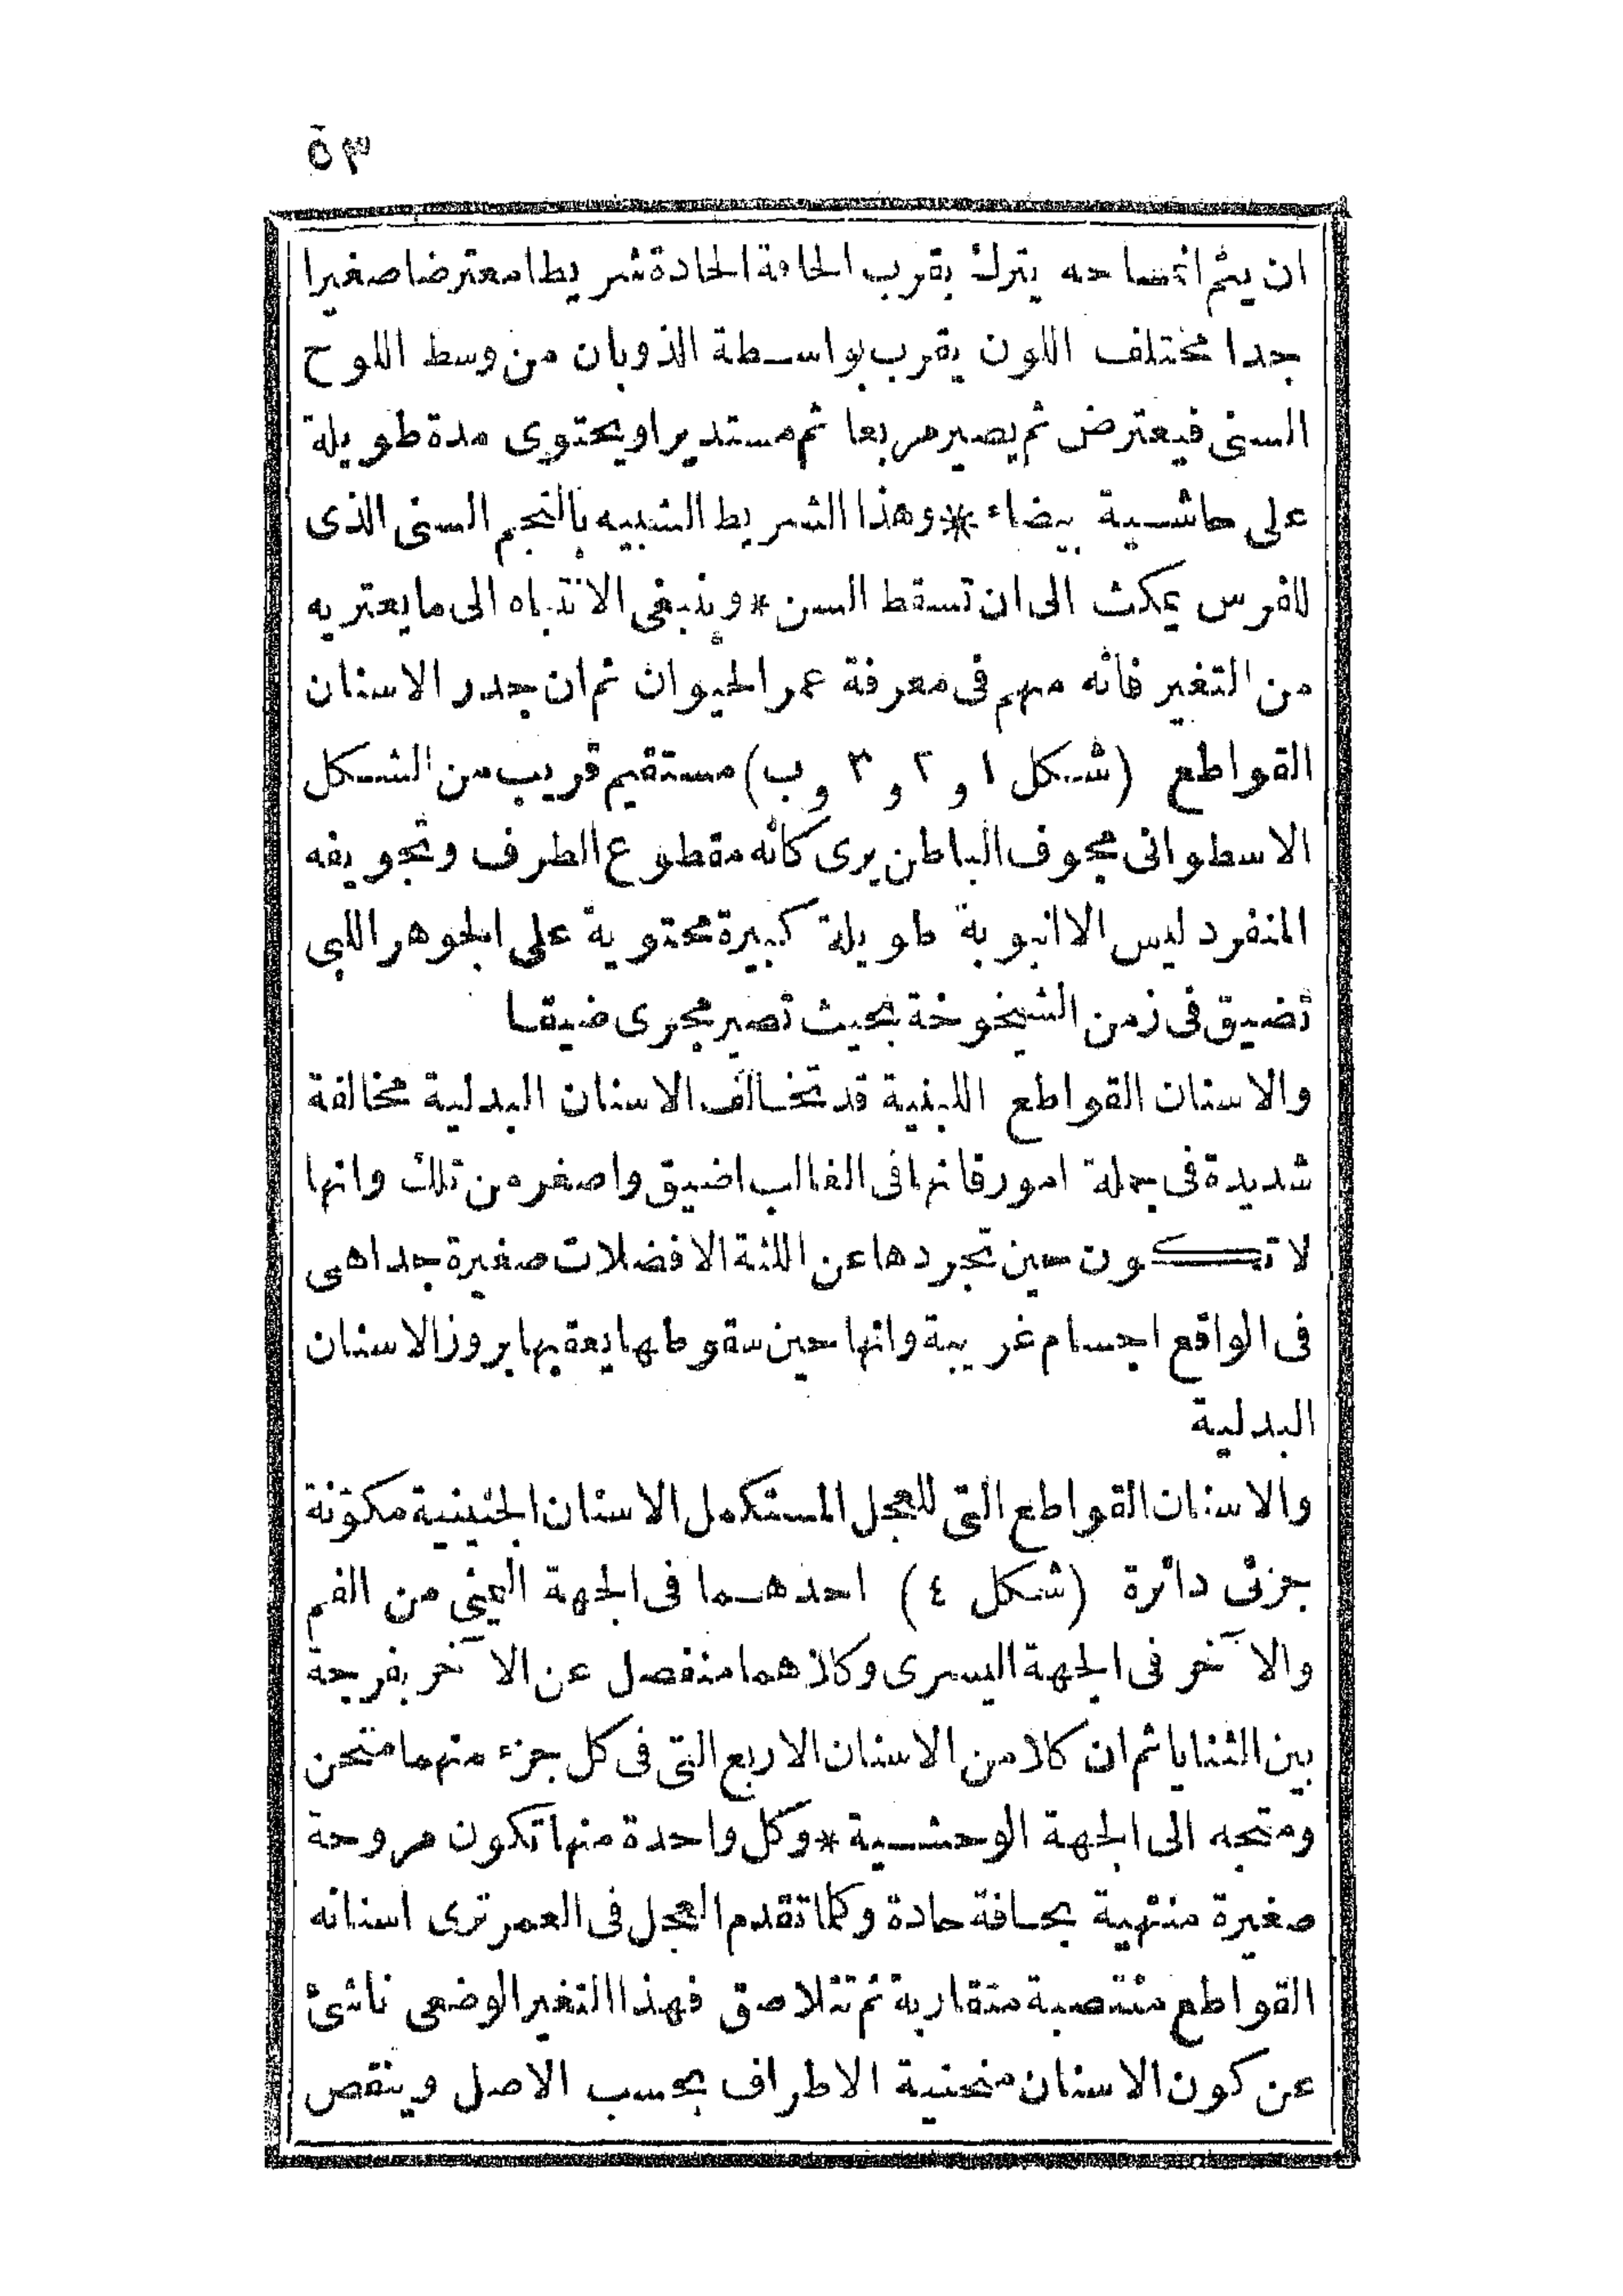 ٥٣
ان يتم انمساحه يترك بقرب الحافة الحادة شريطا معترضا صغيرا
جدا مختلف اللون يقرب بواسطة الذوبان من وسط اللوح
السنى فيعترض ثم يصير مربعا ثم مستديرا ويحتوى مدة طويلة
على حاشية بيضاء * وهذا الشريط الشبيه بالنجم السنى الذى
للفرس يمكث الى ان تسقط السن * وينبغى الانتباه الى ما يعتريه
من التغير فانه مهم فى معرفة عمر الحيوان ثم ان جدر الاسنان
القواطع (شكل ١ و ٢ و ٣ و ب) مستقيم قريب من الشكل
الاسطوانى مجوف الباطن يرى كانه مقطوع الطرف وتجويفه
المنفرد ليس الا انبوبة طويلة كبيرة محتوية على الجوهر اللبى
تضيق فى زمن الشيخوخة بحيث تصير مجرى ضيقا
والاسنان القواطع اللبنية قد تخالف الاسنان البدلية مخالفة
شديدة فى جملة امور فانها فى الغالب اضيق واصغر من تلك وانها
لا تكون حين تجردها عن اللثة الا فضلات صغيرة جدا هى
فى الواقع اجسام غريبة وانها حين سقوطها يعقبها بروز الاسنان
البدلية
والاسنان القواطع التى للعجل المستكمل الاسنان الجنينية مكوّنة
جزئى دائرة (شكل ٤) احدهما فى الجهة اليمنى من الفم
والآخر فى الجهة اليسرى وكلاهما منفصل عن الآخر بفرجة
بين الثنايا ثم ان كلا من الاسنان الاربع التى فى كل جزء منهما منحن
ومتجه الى الجهة الوحشية * وكل واحدة منها تكون مروحة
صغيرة منتهية بحافة حادة وكلما تقدم العجل فى العمر ترى اسنانه
القواطع منتصبة متقاربة ثم تتلاصق فهذا التغير الوضعى ناشئ
عن كون الاسنان منحنية الاطراف بحسب الاصل وينقص